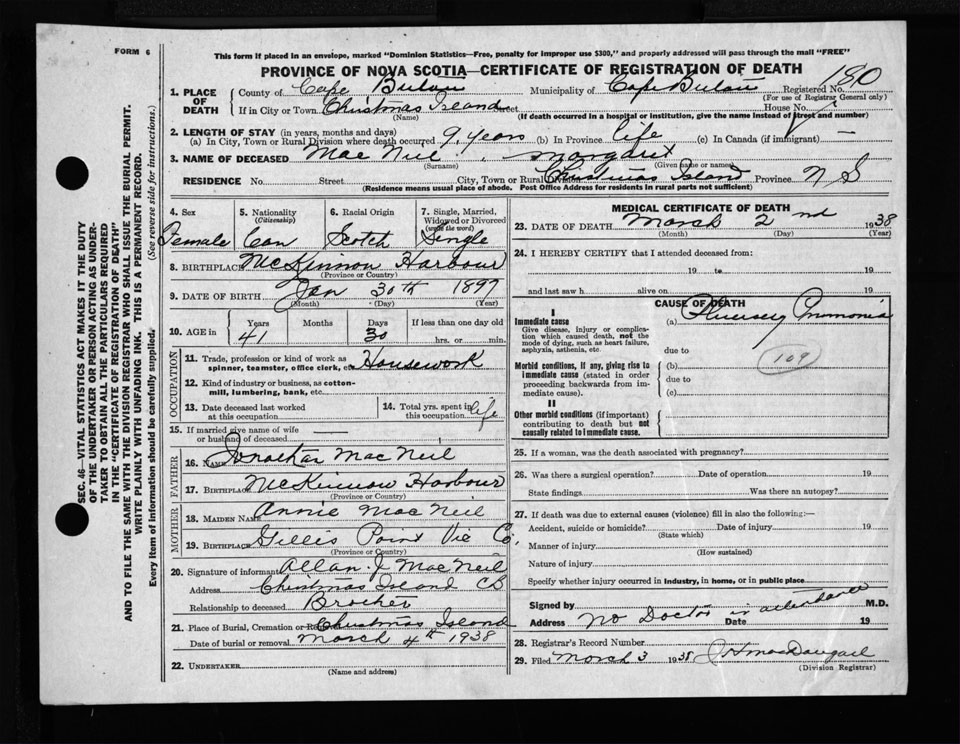 FORM 6
This form if placed in an envelope, marked "Dominion Statistics—Free, penalty for improper use $300," and properly addressed will pass through the mail "FREE"
PROVINCE OF NOVA SCOTIA—CERTIFICATE OF REGISTRATION OF DEATH
1. PLACE OF DEATH County of Cape Breton Municipality of Cape Breton Registered No. 180
(For use of Registrar General only)
If in City or Town Christmas Island Street House No.
(Name) (If death occurred in a hospital or institution, give the name instead of street and number)
2. LENGTH OF STAY (in years, months and days)
(a) In City, Town or Rural Division where death occurred 9 years (b) In Province life (c) In Canada (if immigrant) —
3. NAME OF DECEASED Mac Neil, Margaret
(Surname) (Given name or names)
RESIDENCE No. Street City, Town or Rural Division Christmas Island Province N S
(Residence means usual place of abode. Post Office Address for residents in rural parts not sufficient)
4. Sex Female
5. Nationality (Citizenship) Can
6. Racial Origin Scotch
7. Single, Married, Widowed or Divorced (write the word) Single
8. BIRTHPLACE McKinnon Harbour
(Province or Country)
9. DATE OF BIRTH Jan 30th 1897
(Month) (Day) (Year)
10. AGE in Years Months Days If less than one day old
41 30 hrs. or min.
OCCUPATION
11. Trade, profession or kind of work as spinner, teamster, office clerk, etc. Housework
12. Kind of industry or business, as cotton-mill, lumbering, bank, etc.
13. Date deceased last worked at this occupation
14. Total yrs. spent in this occupation life
15. If married give name of wife or husband of deceased —
FATHER
16. NAME Jonathan Mac Neil
17. BIRTHPLACE McKinnon Harbour
(Province or Country)
MOTHER
18. MAIDEN NAME Annie Mac Neil
19. BIRTHPLACE Gillis Point Vic Co.
(Province or Country)
20. Signature of informant Allan J MacNeil
Address Christmas Island CB
Relationship to deceased Brother
21. Place of Burial, Cremation or Removal Christmas Island
Date of burial or removal March 4th 1938
22. UNDERTAKER
(Name and address)
MEDICAL CERTIFICATE OF DEATH
23. DATE OF DEATH March 2nd 1938
(Month) (Day) (Year)
24. I HEREBY CERTIFY that I attended deceased from:
19 to 19
and last saw h alive on 19
CAUSE OF DEATH
I
Immediate cause (a) Pluersey Pnmonia
Give disease, injury or complication which caused death, not the mode of dying, such as heart failure, asphyxia, asthenia, etc.
due to
109
Morbid conditions, if any, giving rise to immediate cause (stated in order proceeding backwards from immediate cause). (b)
due to
(c)
II
Other morbid conditions (if important) contributing to death but not causally related to immediate cause.
25. If a woman, was the death associated with pregnancy?
26. Was there a surgical operation? Date of operation 19
State findings Was there an autopsy?
27. If death was due to external causes (violence) fill in also the following:—
Accident, suicide or homicide? Date of injury 19
(State which)
Manner of injury
(How sustained)
Nature of injury
Specify whether injury occurred in industry, in home, or in public place
Signed by M.D.
Address No Doctor in attendance Date 19
28. Registrar's Record Number
29. Filed March 3 1938 MacDougall
(Division Registrar)
SEC. 46—VITAL STATISTICS ACT MAKES IT THE DUTY
OF THE UNDERTAKER OR PERSON ACTING AS UNDER-
TAKER TO OBTAIN ALL THE PARTICULARS REQUIRED
IN THE "CERTIFICATE OF REGISTRATION OF DEATH"
AND TO FILE THE SAME WITH THE DIVISION REGISTRAR WHO SHALL ISSUE THE BURIAL PERMIT.
WRITE PLAINLY WITH UNFADING INK. THIS IS A PERMANENT RECORD.
Every item of information should be carefully supplied. (See reverse side for instructions.)